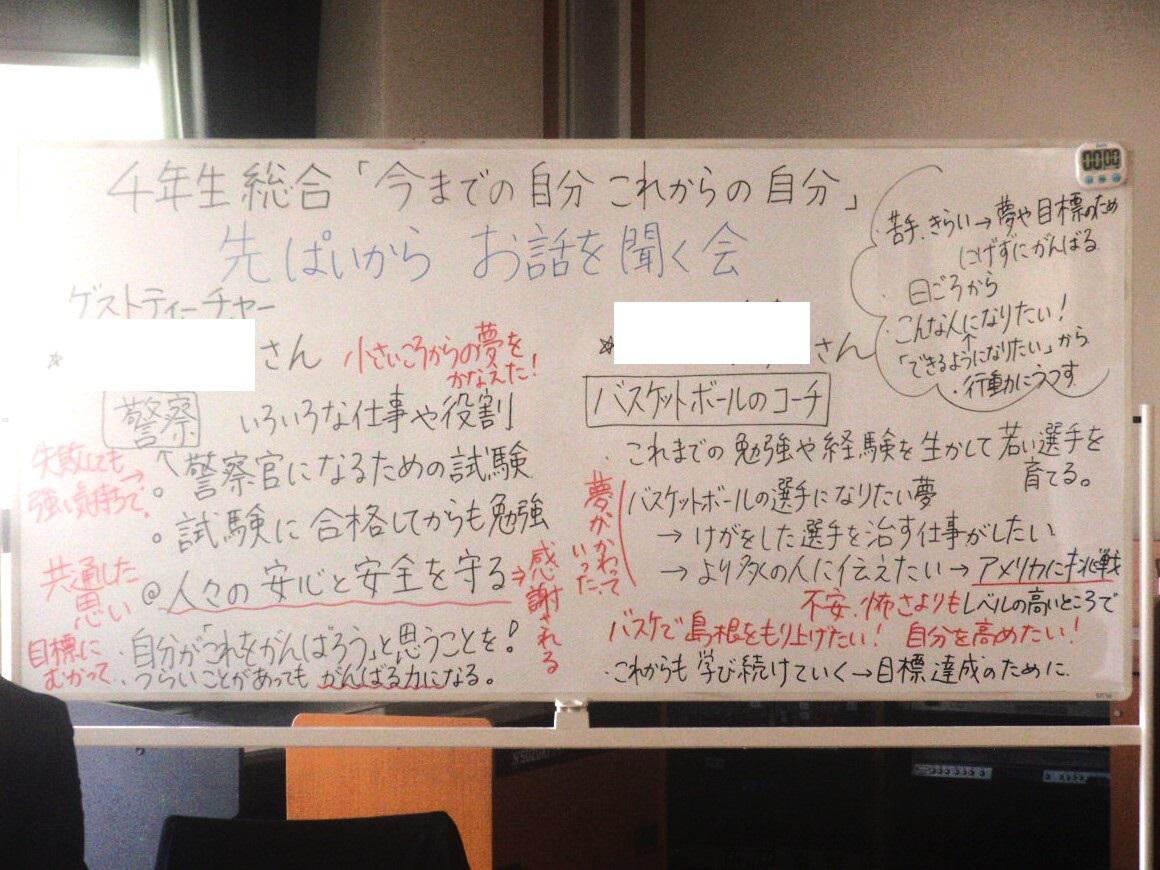 4年生 総合「今までの自分 これからの自分」
先ぱいから お話を聞く会
ゲストティーチャー
☆ さん
小さいころからの夢を
かなえた!
警察 いろいろな仕事や役割
失敗しても
強い気持ちで、
→
↑
。警察官になるための試験
。試験に合格してからも勉強
◎人々の安心と安全を守る
⇒感謝される
共通した
思い
目標に
むかって・・
・自分が「これをがんばろう」と思うことを!
つらいことがあっても がんばる力になる。
☆ さん
バスケットボールのコーチ
・これまでの勉強や経験を生かして若い選手を
育てる。
夢がかわって
いった。
バスケットボールの選手になりたい夢
→けがをした選手を治す仕事がしたい
→より多くの人に伝えたい→アメリカに挑戦
不安、怖さよりもレベルの高いところで
バスケで島根をもり上げたい! 自分を高めたい!
・これからも学び続けていく→目標達成のために
・苦手、きらい→夢や目標のため
にげずにがんばる
・日ごろから
こんな人になりたい!
↑
「できるようになりたい」から
・行動にうつす
00:00